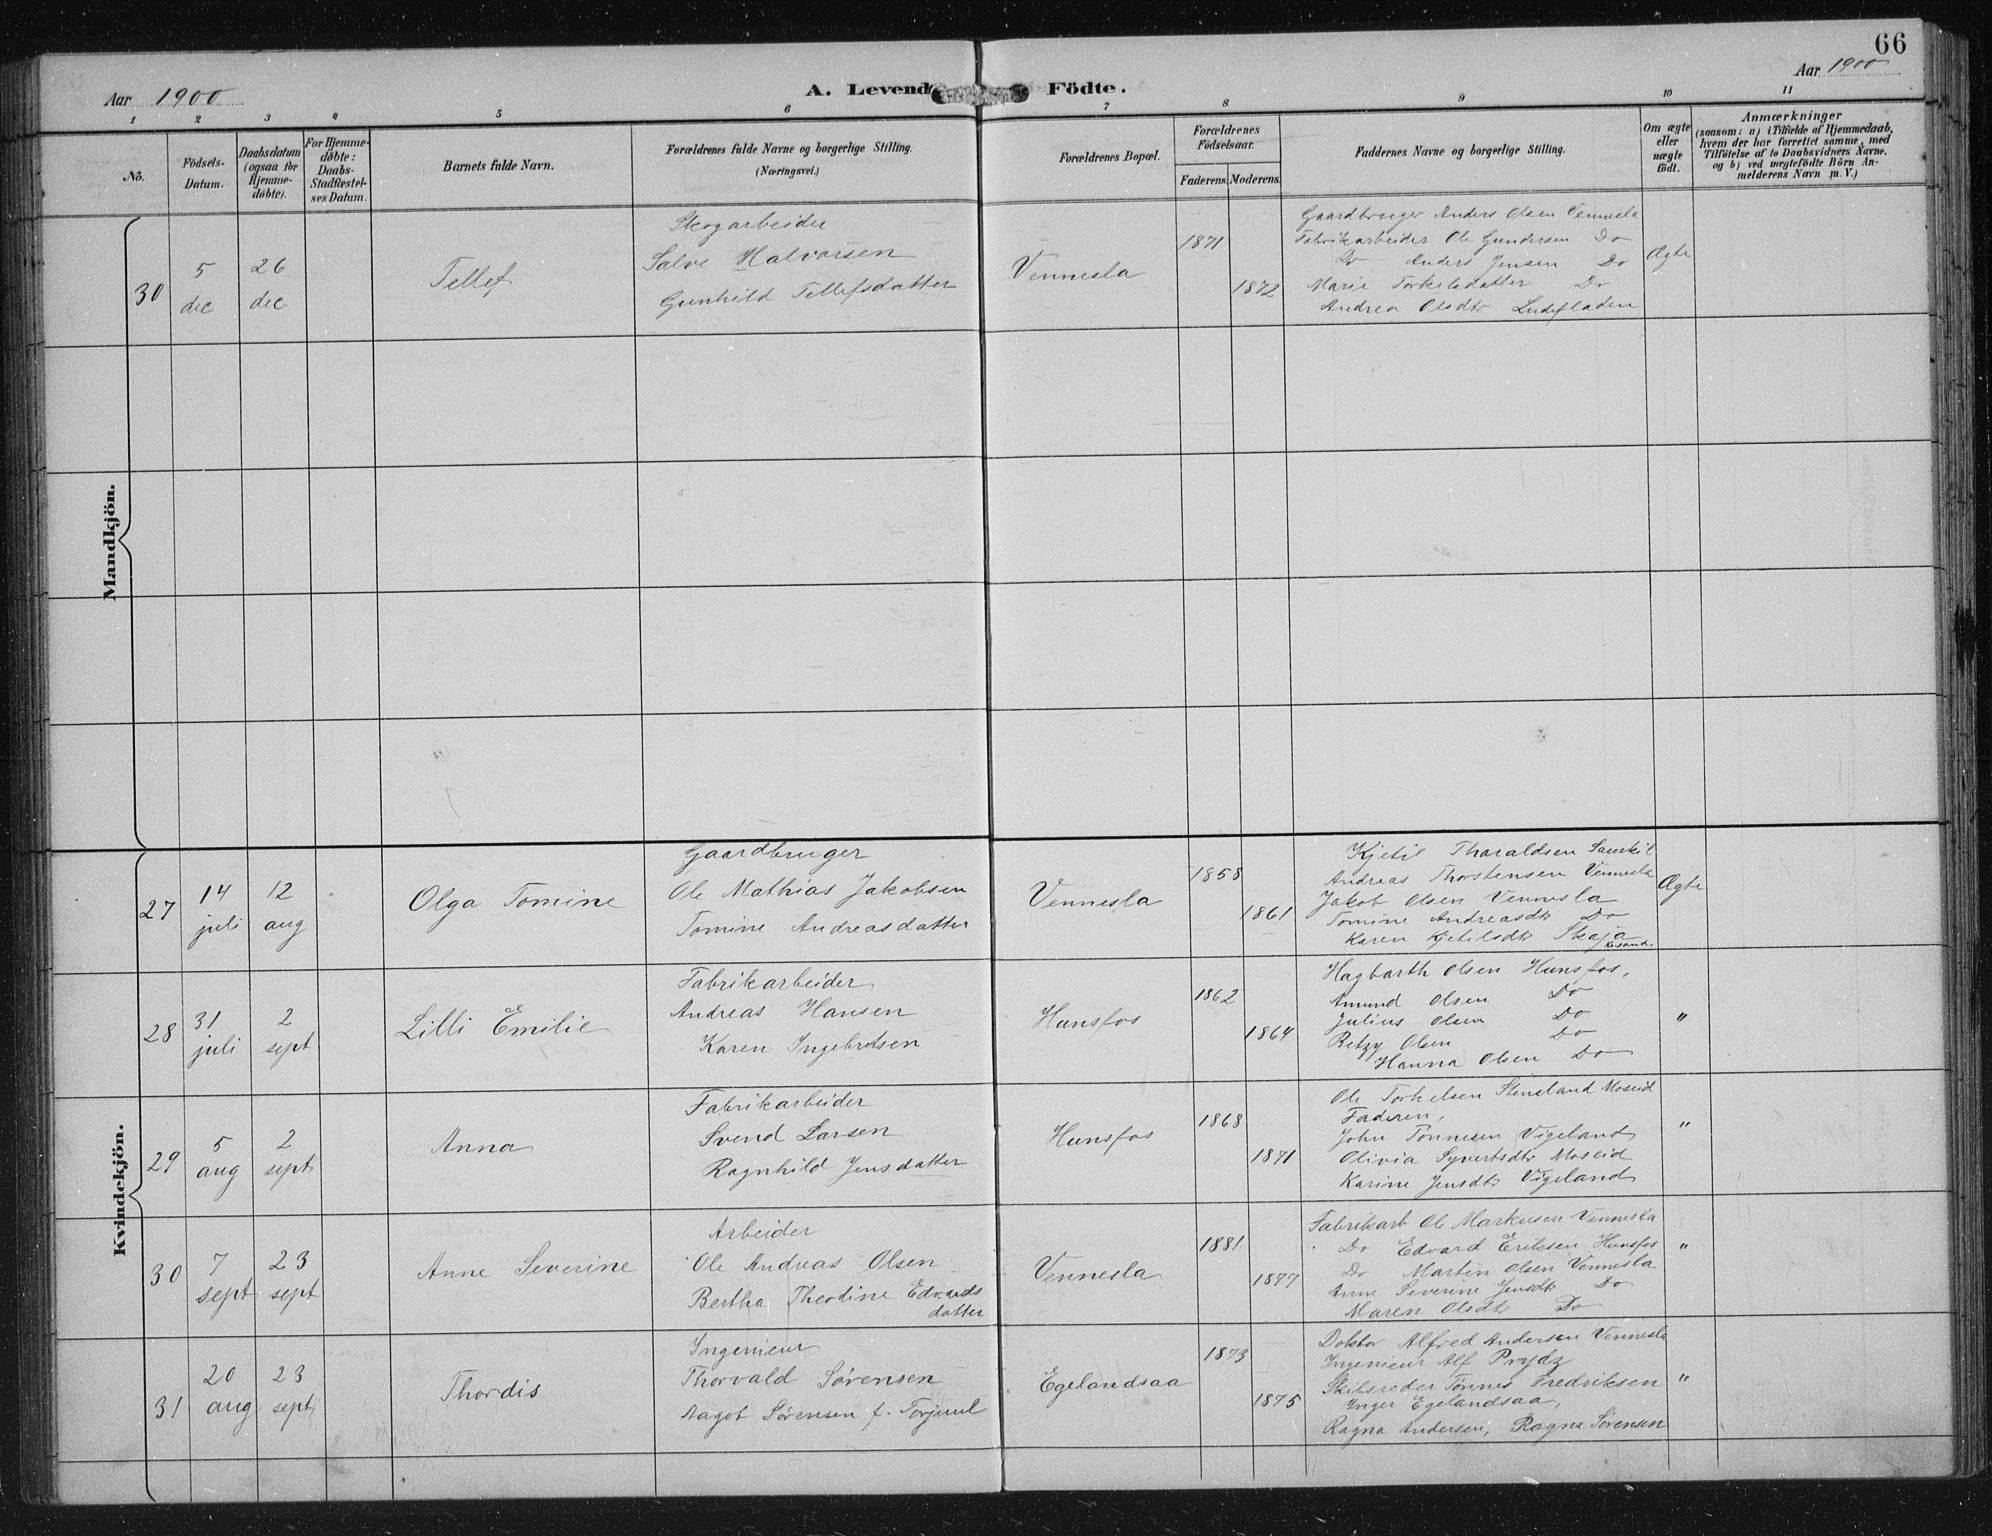 66
Aar 1900
A. Levende Födte.
Aar 1900
1 2 3 4 5 6 7 8 9 10 11
No.
Födsels-Datum.
Daabsdatum (ogsaa for Hjemme-döbte).
For Hjemme-döbte: Daabs-Stadfæstel-ses Datum.
Barnets fulde Navn.
Forældrenes fulde Navne og borgerlige Stilling. (Næringsvei.)
Forældrenes Bopæl.
Forældrenes Födselsaar.
Faderens. Moderens.
Faddernes Navne og borgerlige Stilling.
Om ægte eller uægte födt.
Anmærkninger
(saasom: a) i Tilfælde af Hjemmedaab,
hvem der har forrettet samme, med
Tilföielse af to Daabsvidners Navne.
og b) ved uægtefödte Börn An-
melderens Navn m. V.)
Mandkjön.
30
5 dec
26 dec
Tellef
Skogarbeider
Salve Halvorsen
Gunhild Tellefsdatter
Vennesla
1871
1872
Gaardbruger Anders Olsen Vennesla
Fabrikarbeider Ole Gundersen Do
Do Anders Jensen Do
Marie Torkelsdatter Do
Andrea Olsdtr
Ægte
Kvindekjön.
27
14 juli
12 aug
Olga Tomine
Gaardbruger
Ole Mathias Jakobsen
Tomine Andreasdatter
Vennesla
1858
1861
Kjetil Tharaldsen
Andreas Thorstensen Vennesla
Jakob Olsen Vennesla
Tomine Andreasdtr Do
Karen Kjetilsdtr Skaja
Ægte
28
31 juli
2 sept
Lilli Emilie
Fabrikarbeider
Andreas Hansen
Karen Ingebretsen
Hunsfos
1862
1864
Hagbarth Olsen Hunsfos,
Amund Olsen Do
Julius Olsen Do
Betzy Olsen Do
Hanna Olsen Do
"
29
5 aug
2 sept
Anna
Fabrikarbeider
Svend Larsen
Ragnhild Jensdatter
Hunsfos
1868
1871
Ole Torkelsen Stensland Moseid
Faderen,
John Tönnesen Vigeland
Olivia Syvertsdtr Moseid
Karine Jensdtr Vigeland
"
30
7 sept
23 sept
Anne Severine
Arbeider
Ole Andreas Olsen
Bertha Theodine Edvards
datter
Vennesla
1881
1877
Fabrikarb Ole Markusen Vennesla
Do Edvard Eriksen Hunsfos
Do Martin Olsen Vennesla
Anne Severine Jensdtr Do
Maren Olsdtr Do
"
31
20 aug
23 sept
Thordis
Ingenieur
Thorvald Sørensen
Aagot Sørensen f. Torjuul
Egelandsaa
1873
1875
Doktor Alfred Andersen Vennesla
Ingenieur Alf Prydz
Skibsreder Tønnes Fredriksen
Inger Egelandsaa,
Ragna Andersen, Ragna Sørensen
"